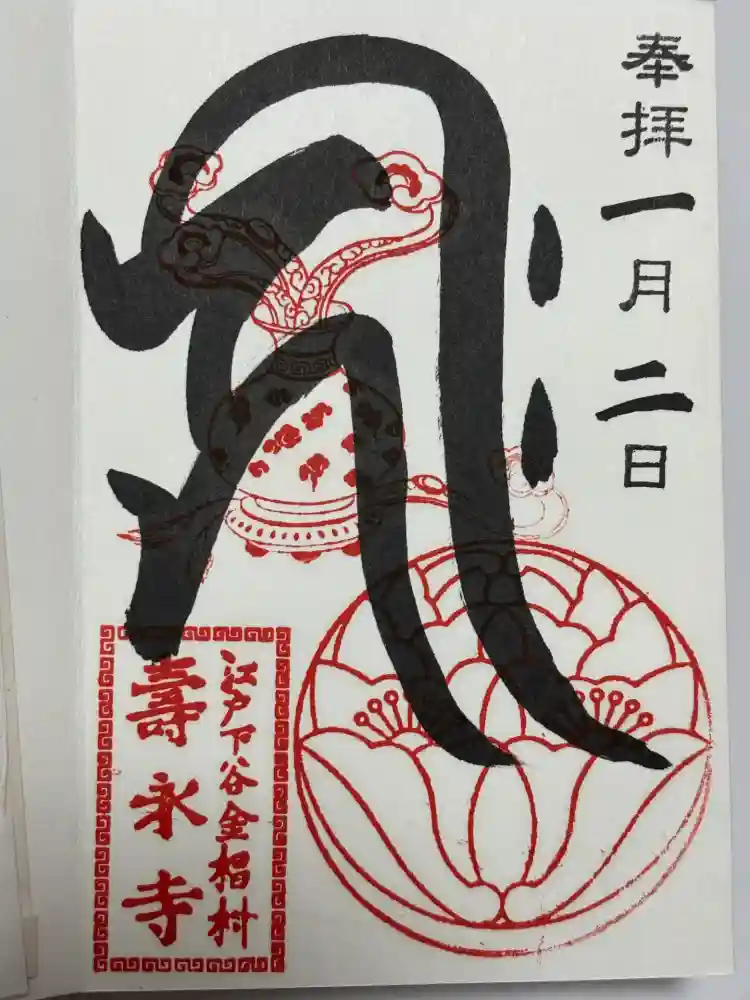 奉拝一月二日
江戸下谷金椙村
壽永寺